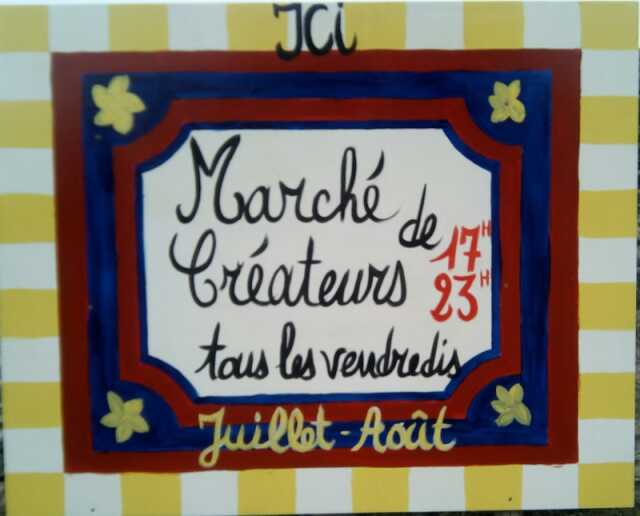 ICi
Marché de 17H
Créateurs 23H
tous les vendredis
Juillet-Août